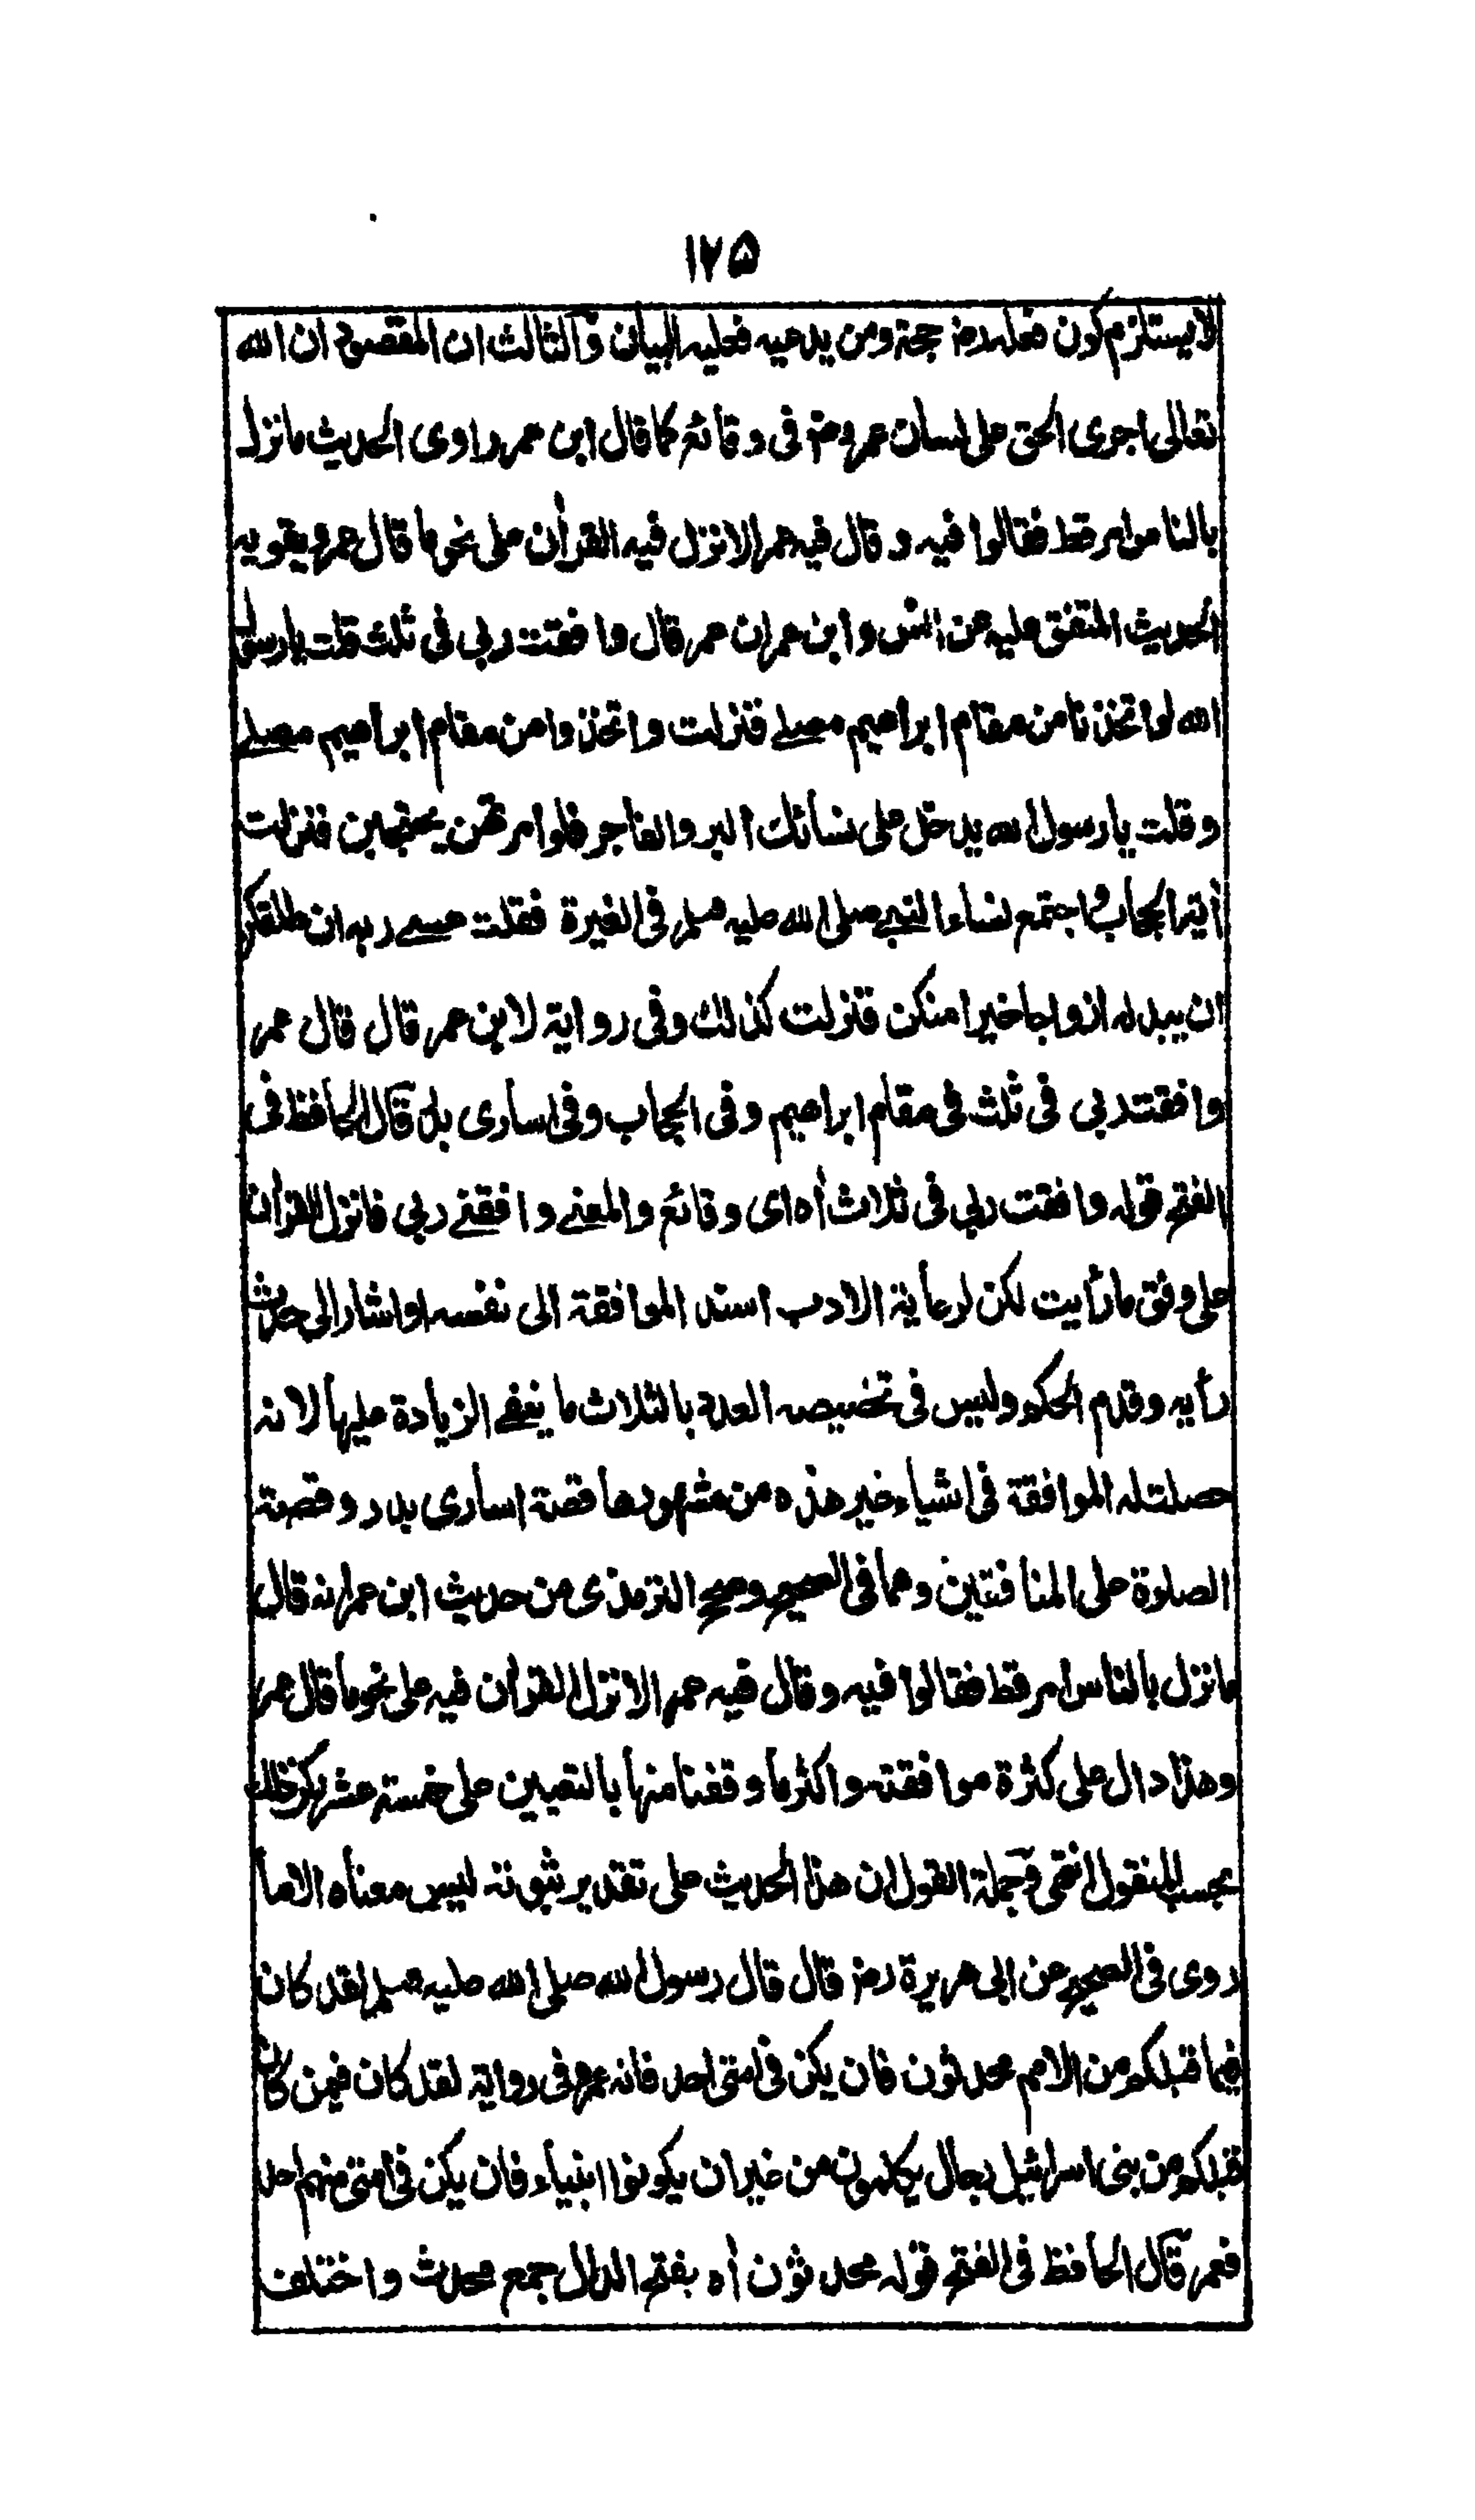 ١٧٥
لا يستلزم كون مقلده رض حجة ومن يدعيه فعليه البيان والثالث ان المقصود ان الله
تعالى اجرى الحق على لسان عمر رض فى وقائع كما قال ابن عمر راوى الحديث ما نزل
بالناس امر قط فقالوا فيه وقال فيه عمر الا نزل فيه القرأن على نحو ما قال عمر ويقويه
الحديث المتفق عليه عن انس وابن عمر ان عمر قال وافقت ربي فى ثلث قلت يا رسول
الله لو اتخذنا من مقام ابراهيم مصلے فنزلت واتخذوا من مقام ابراهيم مصلے
وقلت يا رسول الله يدخل على نسائك البر والفاجر فلو امرتهن يحتجبن فنزلت
أية الحجاب واجتمع نساء النبے صلى الله عليه وسلم فى الغيرة فقلت عسے ربه ان طلقكن
ان يبدله ازواجا خيرا منكن فنزلت كذلك وفى رواية لابن عمر قال قال عمر
وافقت ربي فى ثلث فى مقام ابراهيم وفى الحجاب وفى اسارى بدر قال الحافظ فى
الفتح قوله وافقت ربي فى ثلاث أه اى وقائع والمعنے وافقنے ربي فانزل القرأن
على وفق ما رأيت لكن لرعاية الادب اسند الموافقة الى نفسه او اشار الى حدث
رأيه وقدم الحكم وليس فى تخصيصه العدد بالثلاث ما ينفے الزيادة عليها لانه
حصلت له الموافقة فى اشياء غير هذه من مشهورها قصة اسارى بدر وقصة
الصلوة على المنافقين وهما فى الصحيح وصحح الترمذى من حديث ابن عمر انه قال
ما نزل بالناس امر قط فقالوا فيه وقال فيه عمر الا نزل القرأن فيه على نحو ما قال عمر
وهذا دال على كثرة موافقته واكثر ما وقفنا منها بالتعيين على خمسة عشر لكن ذلك
بحسب المنقول انتهى وجملة القول ان هذا الحديث على تقدير ثبوته ليس معناه الا ما
روى فى الصحيح عن ابى هريرة رض قال قال رسول الله صلى الله عليه وسلم لقد كان
فيما قبلكم من الامم محدثون فان يكن فى امتى احد فانه عمر وفى رواية لقد كان فيمن كان
قبلكم من بنى اسرائيل رجال يكلمون من غير ان يكونوا انبياء فان يكن فى امتى منهم احد
فعمر قال الحافظ فى الفتح قوله محدثون أه بفتح الدال جمع محدث واختلف